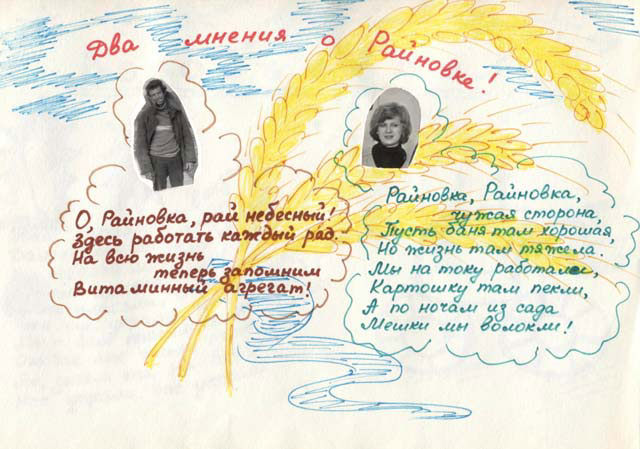 Два мнения о Райновке!
О, Райновка, рай небесный!
Здесь работать каждый рад.
На всю жизнь
теперь запомним
Витаминный агрегат!
Райновка, Райновка,
чужая сторона,
Пусть баня там хорошая,
Но жизнь там тяжела.
Мы на току работали,
Картошку там пекли,
А по ночам из сада
Мешки мы волокли!